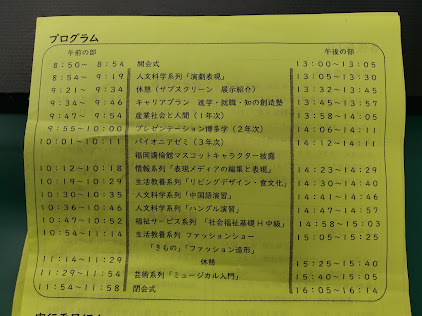 プログラム
午前の部 午後の部
8:50～ 8:54 開会式 13:00～13:05
8:54～ 9:19 人文科学系列「演劇表現」 13:05～13:30
9:21～ 9:34 休憩（サブスクリーン 展示紹介） 13:32～13:45
9:34～ 9:46 キャリアプラン 進学・就職・知の創造塾 13:45～13:57
9:47～ 9:54 産業社会と人間（1年次） 13:58～14:05
9:55～10:00 プレゼンテーション博多学（2年次） 14:06～14:11
10:01～10:11 パイオニアゼミ（3年次） 14:12～14:11
福岡講倫館マスコットキャラクター披露
10:12～10:18 情報系列「表現メディアの編集と表現」 14:23～14:29
10:19～10:29 生活教養系列「リビングデザイン・食文化」 14:30～14:40
10:30～10:35 人文科学系列「中国語演習」 14:41～14:46
10:36～10:46 人文科学系列「ハングル演習」 14:47～14:57
10:47～10:52 福祉サービス系列 「社会福祉基礎H中級」 14:58～15:03
10:54～11:14 生活教養系列 ファッションショー 15:05～15:25
「きもの」「ファッション造形」
11:14～11:29 休憩 15:25～15:40
11:29～11:54 芸術系列「ミュージカル入門」 15:40～16:05
11:54～11:58 閉会式 16:05～16:14